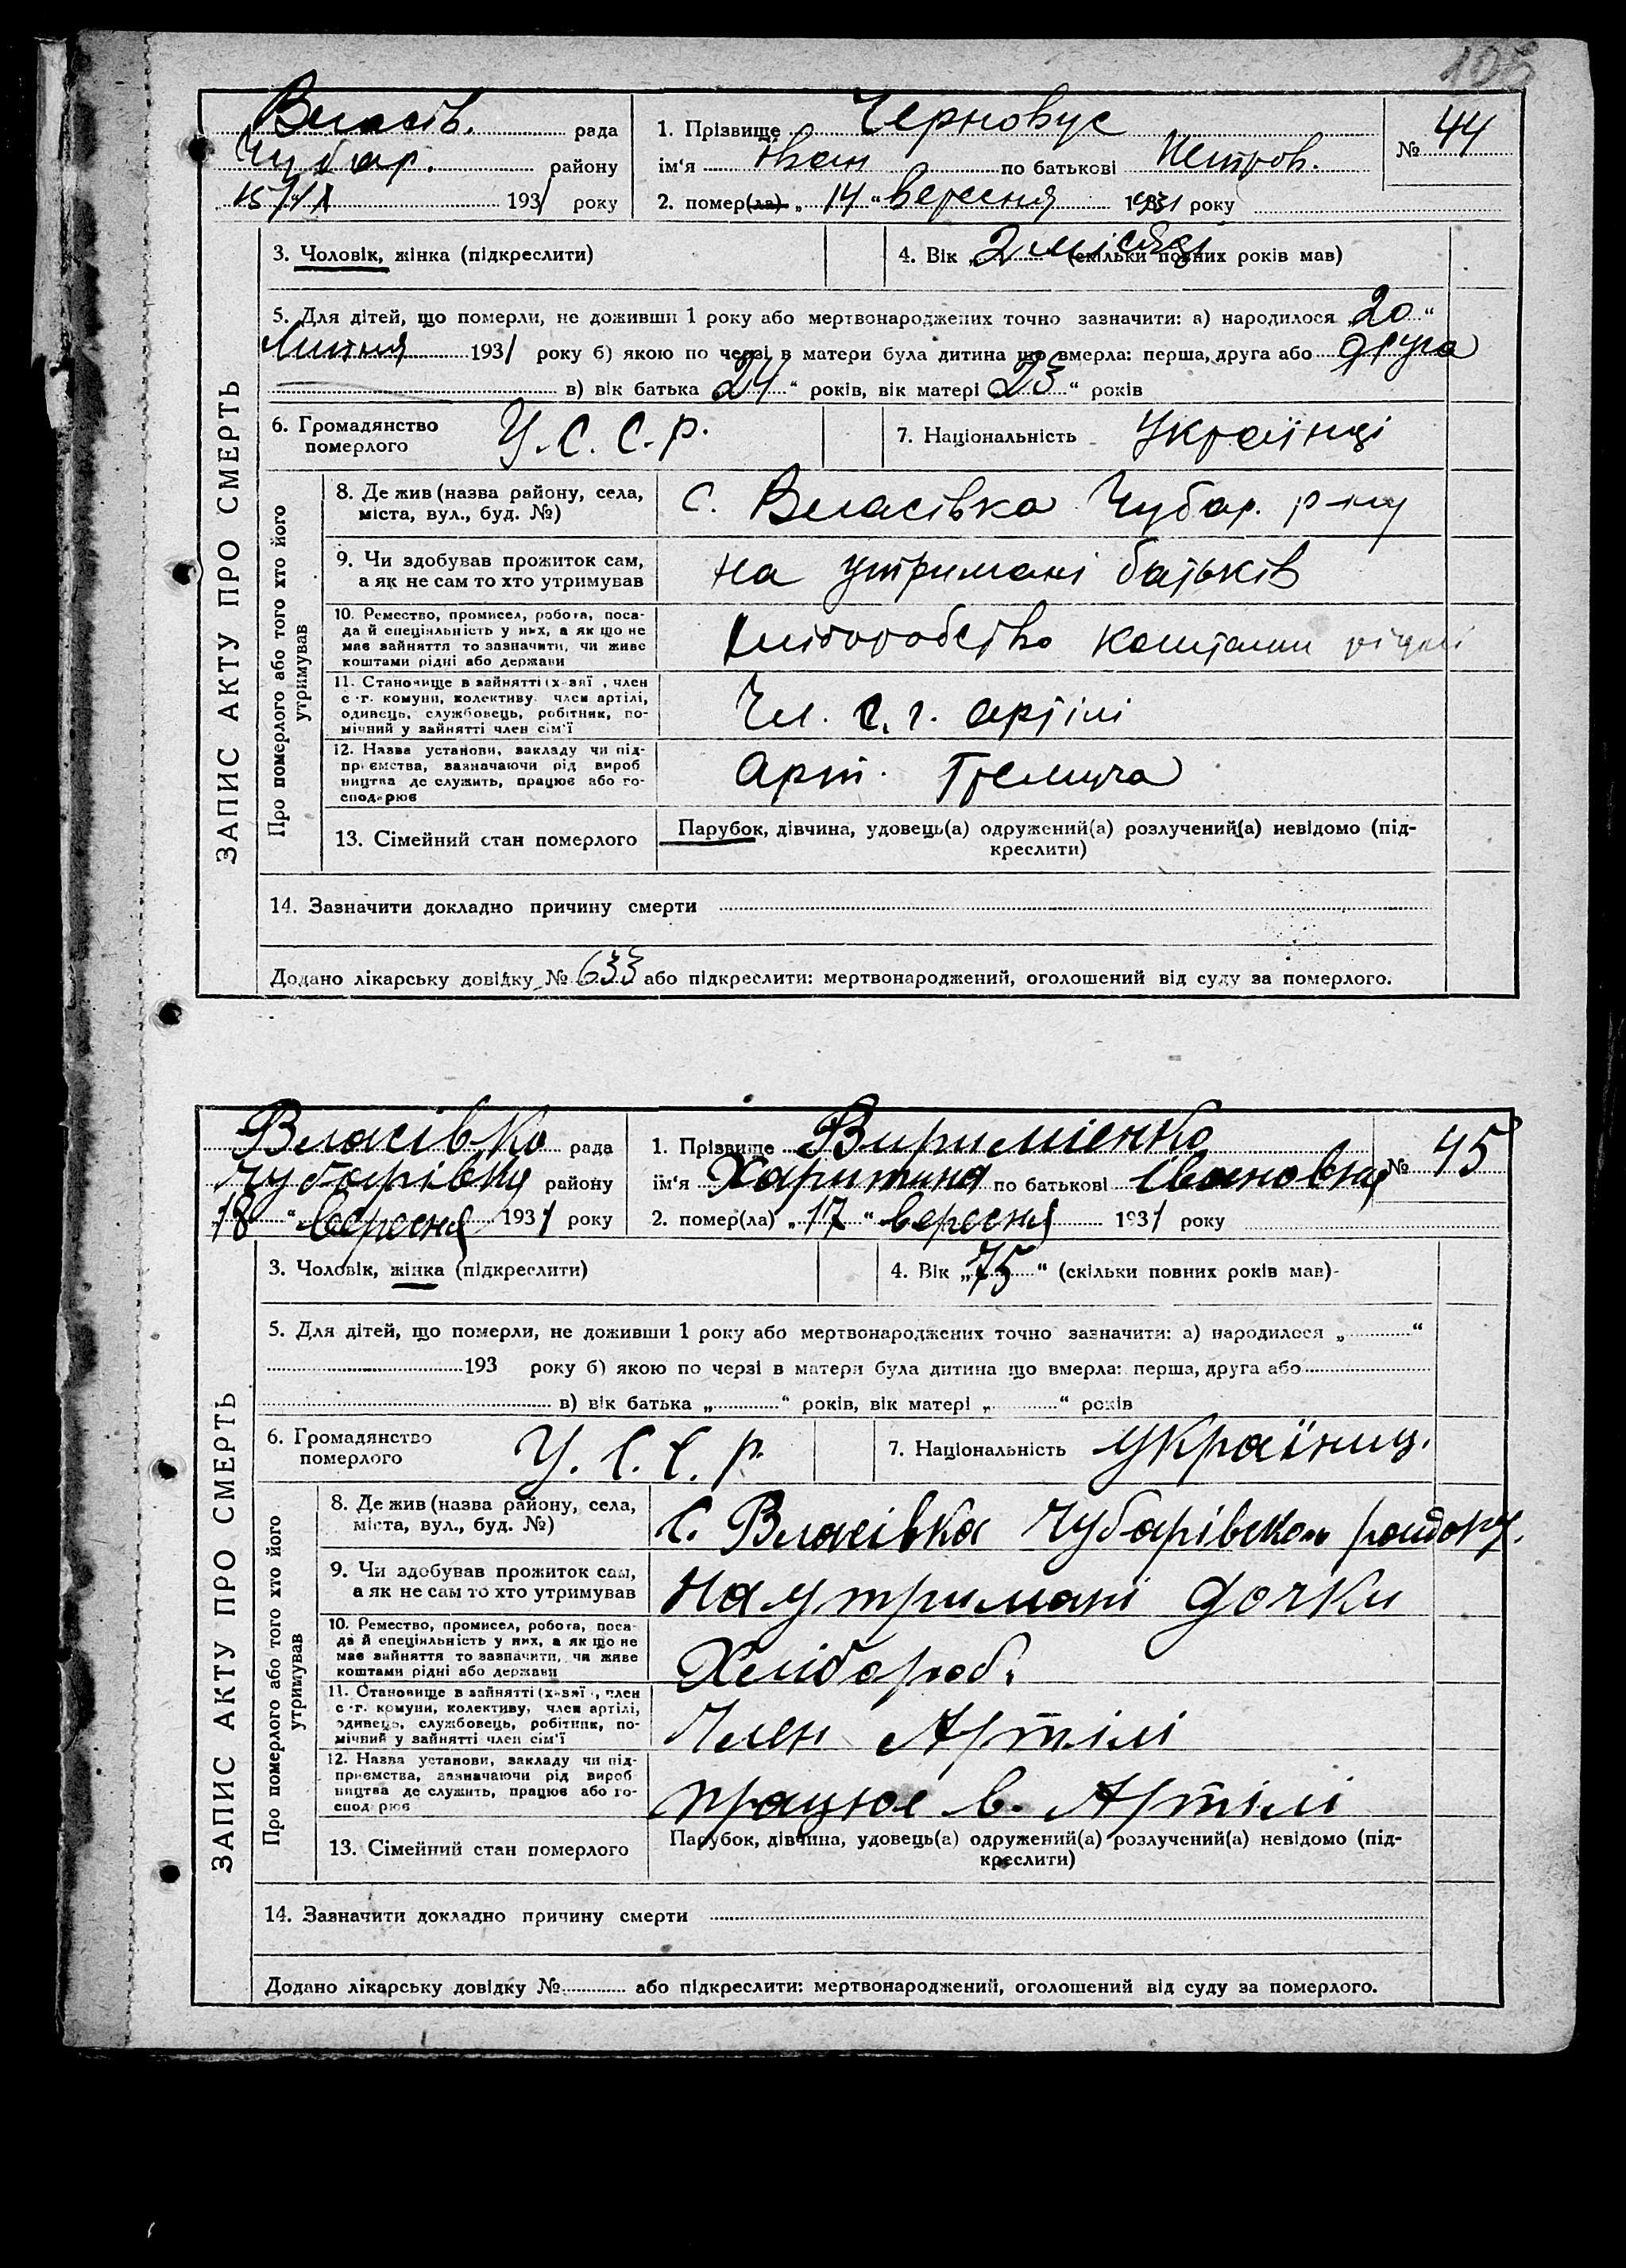 105
Власів. рада
Чубар. району
15/IX 1931 року
1. Прізвище Черновус
ім'я Іван по батькові Петров.
2. помер(ла) „ 14 " вересня 1931 року
№ 44
3. Чоловік, жінка (підкреслити)
4. Вік „ 2 місяці (скільки повних років мав)
5. Для дітей, що померли, не доживши 1 року або мертвонароджених точно зазначити: а) народилося „ 20 "
Липня 1931 року б) якою по черзі в матери була дитина що вмерла: перша, друга або друга
в) вік батька „ 24 " років, вік матері „ 23 " років
6. Громадянство
померлого
У.С.С.Р.
7. Національність Українці
ЗАПИС АКТУ ПРО СМЕРТЬ
Про померлого або того хто його
утримував
8. Де жив (назва району, села,
міста, вул., буд. №)
С. Власівка Чубар. р-ну
9. Чи здобував прожиток сам,
а як не сам то хто утримував
на утримані батьків
10. Ремество, промисел, робота, поса-
да й спеціяльність у них, а як що не
має зайняття то зазначити, чи живе
коштами рідні або держави
Хліборобство коштами рідні
11. Становище в зайнятті (х-вяї, член
с.-г. комуни, колективу, член артілі,
одинець, службовець, робітник, по-
мічний у зайнятті член сім'ї
Чл. с. г. артілі
12. Назва установи, закладу чи під-
приємства, зазначаючи рід вироб
ництва де служить, працює або го-
сподарює
Арт. Гремуча
13. Сімейний стан померлого
Парубок, дівчина, удовець(а) одружений(а) розлучений(а) невідомо (під-
креслити)
14. Зазначити докладно причину смерти
Додано лікарську довідку № 633 або підкреслити: мертвонароджений, оголошений від суду за померлого.
Власівка рада
Чубарівки району
„18" вересня 1931 року
1. Прізвище
ім'я Харитина по батькові Івановна
2. помер(ла) „ 17 " вересня 1931 року
№ 45
3. Чоловік, жінка (підкреслити)
4. Вік „ 75 " (скільки повних років мав)
5. Для дітей, що померли, не доживши 1 року або мертвонароджених точно зазначити: а) народилося „ "
193 року б) якою по черзі в матери була дитина що вмерла: перша, друга або
в) вік батька „ " років, вік матері „ " років
6. Громадянство
померлого
У.С.С.Р.
7. Національність Україниц.
ЗАПИС АКТУ ПРО СМЕРТЬ
Про померлого або того хто його
утримував
8. Де жив (назва району, села,
міста, вул., буд. №)
С. Власівка Чубарівском
9. Чи здобував прожиток сам,
а як не сам то хто утримував
На утримані дочки
10. Ремество, промисел, робота, поса-
да й спеціяльність у них, а як що не
має зайняття то зазначити, чи живе
коштами рідні або держави
Хлібороб.
11. Становище в зайнятті (х-вяї, член
с.-г. комуни, колективу, член артілі,
одинець, службовець, робітник, по-
мічний у зайнятті член сім'ї
Член Артілі
12. Назва установи, закладу чи під-
приємства, зазначаючи рід вироб
ництва де служить, працює або го-
сподарює
працює в. Артілі
13. Сімейний стан померлого
Парубок, дівчина, удовець(а) одружений(а) розлучений(а) невідомо (під-
креслити)
14. Зазначити докладно причину смерти
Додано лікарську довідку № або підкреслити: мертвонароджений, оголошений від суду за померлого.